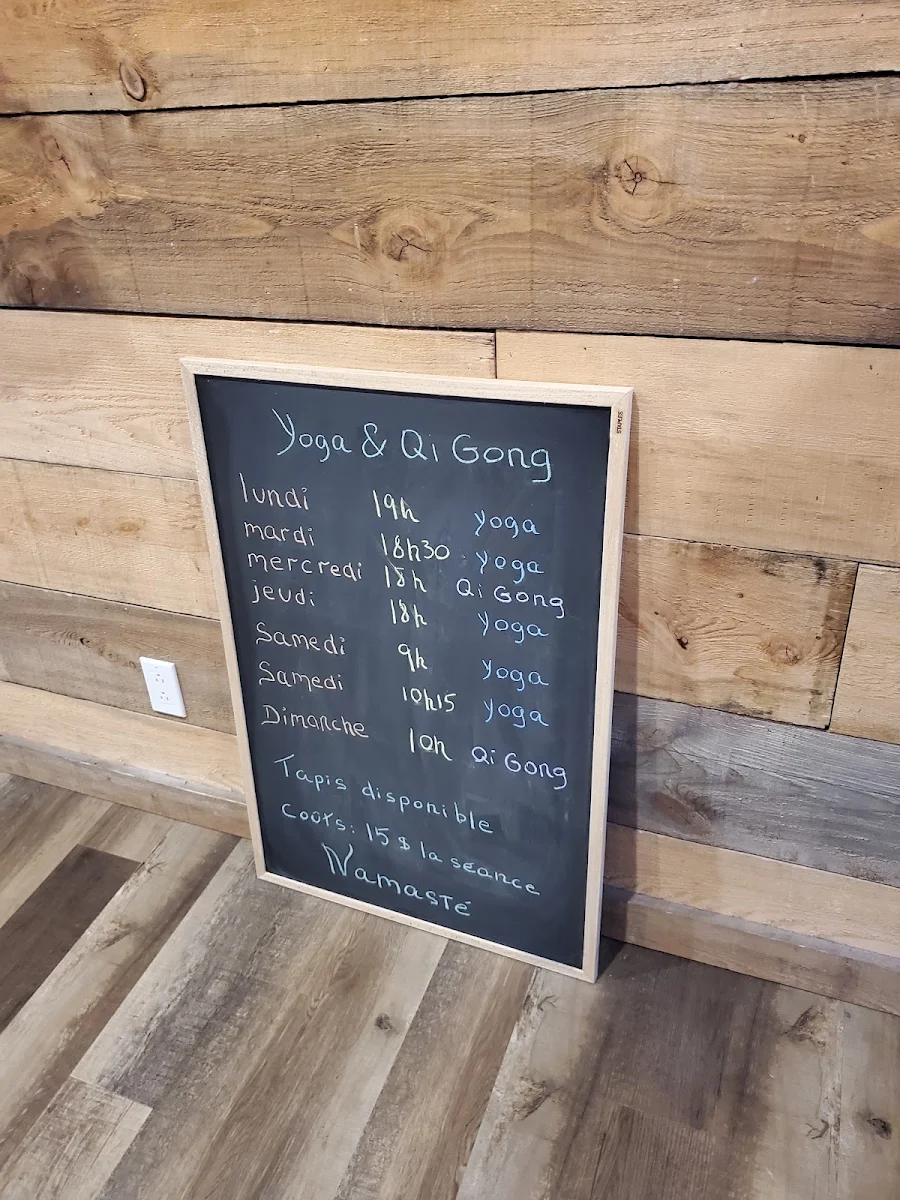 Yoga & Qi Gong
lundi 19h yoga
mardi 18h30 yoga
mercredi 18h Qi Gong
jeudi 18h yoga
Samedi 9h yoga
Samedi 10h15 yoga
Dimanche 10h Qi Gong
Tapis disponible
Coûts: 15 $ la séance
Namasté
STAPLES